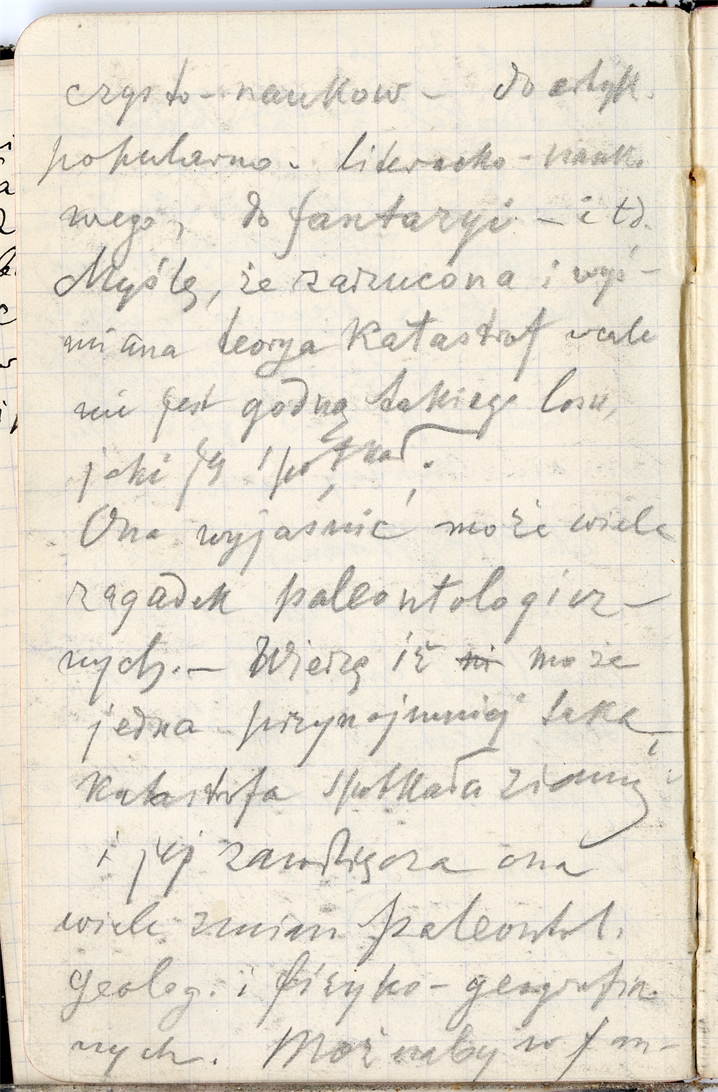 czysto-naukow – do artyk.
popularno. literacko-nauko
wego, do fantazyi – i td.
Myślę, że zarzucona i wyś-
miana teorya katastrof wcale
nie jest godną takiego losu,
jaki ją spotkał.
Ona wyjaśnić może wiele
zagadek paleontologicz-
nych. – Wierzę iż ni może
jedna przynajmniej taka
katastrofa spotkała ziemię
i jej zawdzięcza ona
wiele zmian paleontol.
geolog. i fizyko-geografic.
nych. Możnaby w fan-